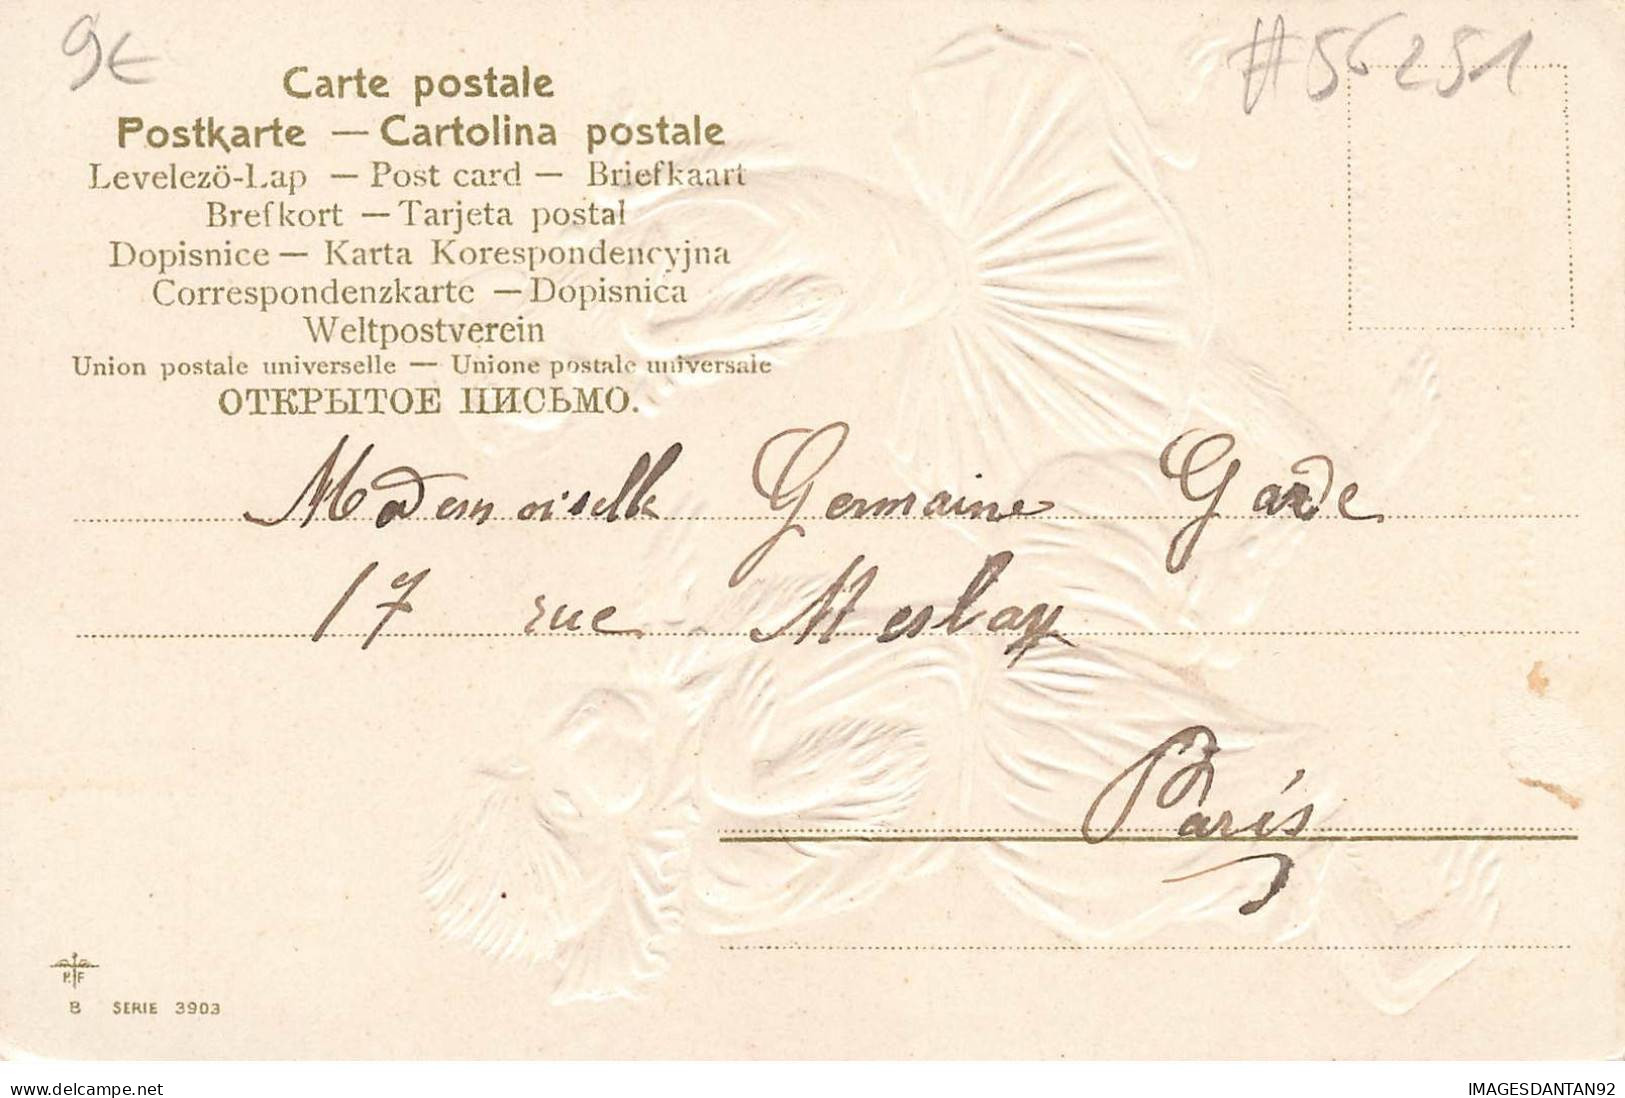 9€
#56251
Carte postale
Postkarte — Cartolina postale
Levelezö-Lap — Post card — Briefkaart
Brefkort — Tarjeta postal
Dopisnice — Karta Korespondencyjna
Correspondenzkarte — Dopisnica
Weltpostverein
Union postale universelle — Unione postale universale
ОТКРЫТОЕ ПИСЬМО.
Mademoiselle Germaine Garde
17 rue Meslay
Paris
P. F
B SERIE 3903
www.delcampe.net
IMAGESDANTAN92